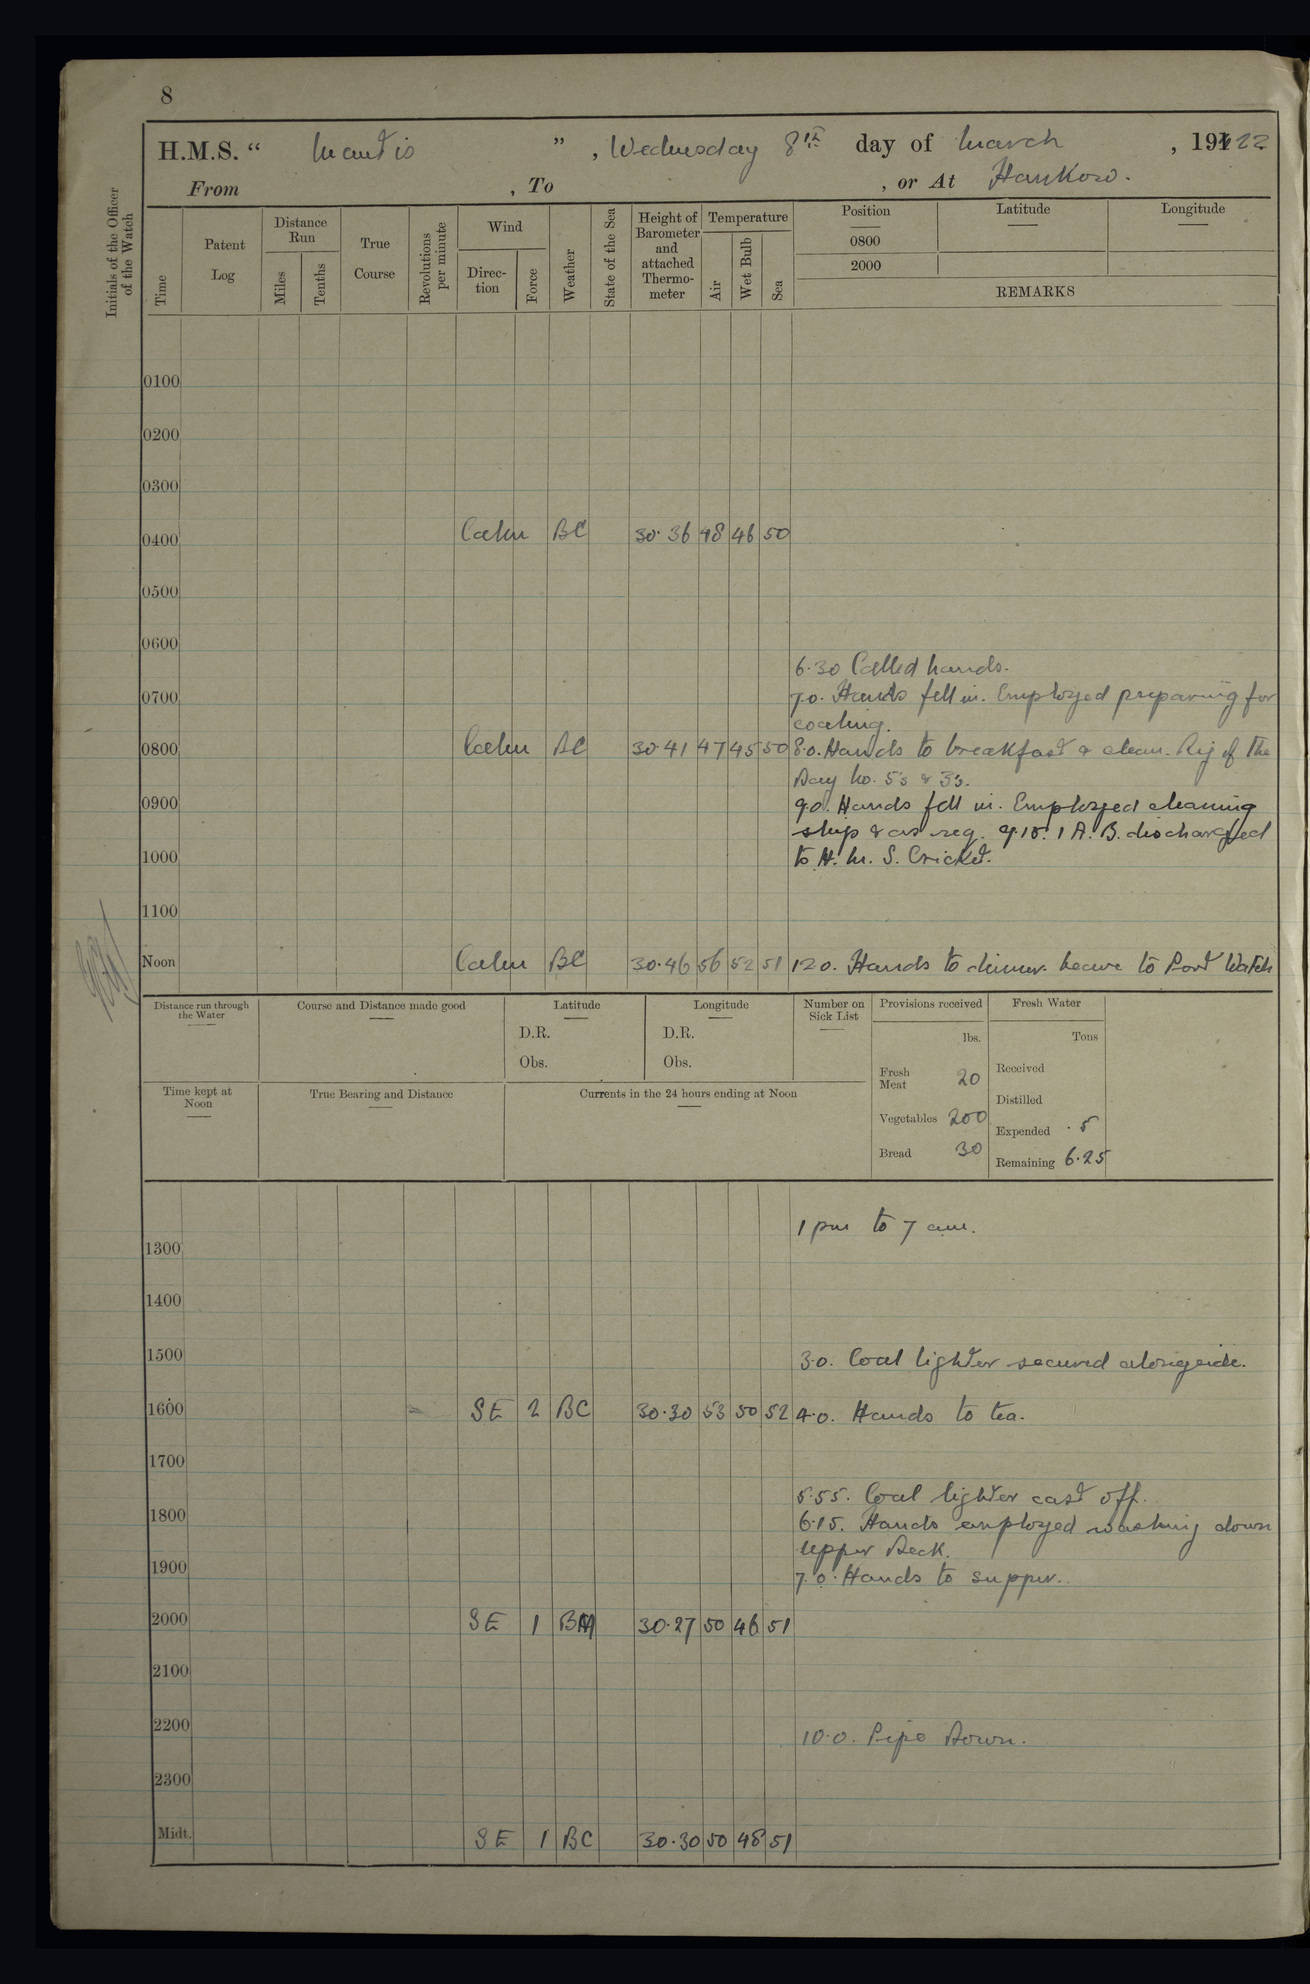 8
H.M.S. “ Mantis ” , Wednesday 8th day of March , 1922
From , To , or At Hankow.
Initials of the Officer of the Watch
Time
Patent Log
Distance Run
Miles
Tenths
True Course
Revolutions per minute
Wind
Direc-tion
Force
Weather
State of the Sea
Height of Barometer and attached Thermo-meter
Temperature
Air
Wet Bulb
Sea
Position
Latitude
Longitude
0800
2000
REMARKS
0100
0200
0300
0400 Calm BC 30.36 48 46 50
0500
0600
6.30 Called hands.
0700 7.0. Hands fell in. Employed preparing for
coaling.
0800 Calm BC 30.41 47 45 50 8.0. Hands to breakfast & clean. Rig of the
Day No. 5s & 3s.
0900 9.0. Hands fell in. Employed cleaning
ship & as req. 9.15. 1 A.B. discharged
1000 to H.M.S. Cricket.
1100
Noon Calm BC 30.46 56 52 51 12.0. Hands to dinner. Leave to Port Watch
Distance run through the Water
Course and Distance made good
Latitude
D.R.
Obs.
Longitude
D.R.
Obs.
Number on Sick List
Provisions received
lbs.
Fresh Meat 20
Vegetables 200
Bread 30
Fresh Water
Tons
Received
Distilled
Expended .5
Remaining 6.25
Time kept at Noon
True Bearing and Distance
Currents in the 24 hours ending at Noon
1 pm to 7 am.
1300
1400
1500 3.0. Coal lighter secured alongside.
1600 SE 2 BC 30.30 53 50 52 4.0. Hands to tea.
1700
5.55. Coal lighter cast off.
1800 6.15. Hands employed washing down
Upper Deck.
1900 7.0. Hands to supper.
2000 SE 1 BM 30.27 50 46 51
2100
2200 10.0. Pipe Down.
2300
Midt. SE 1 BC 30.30 50 48 51